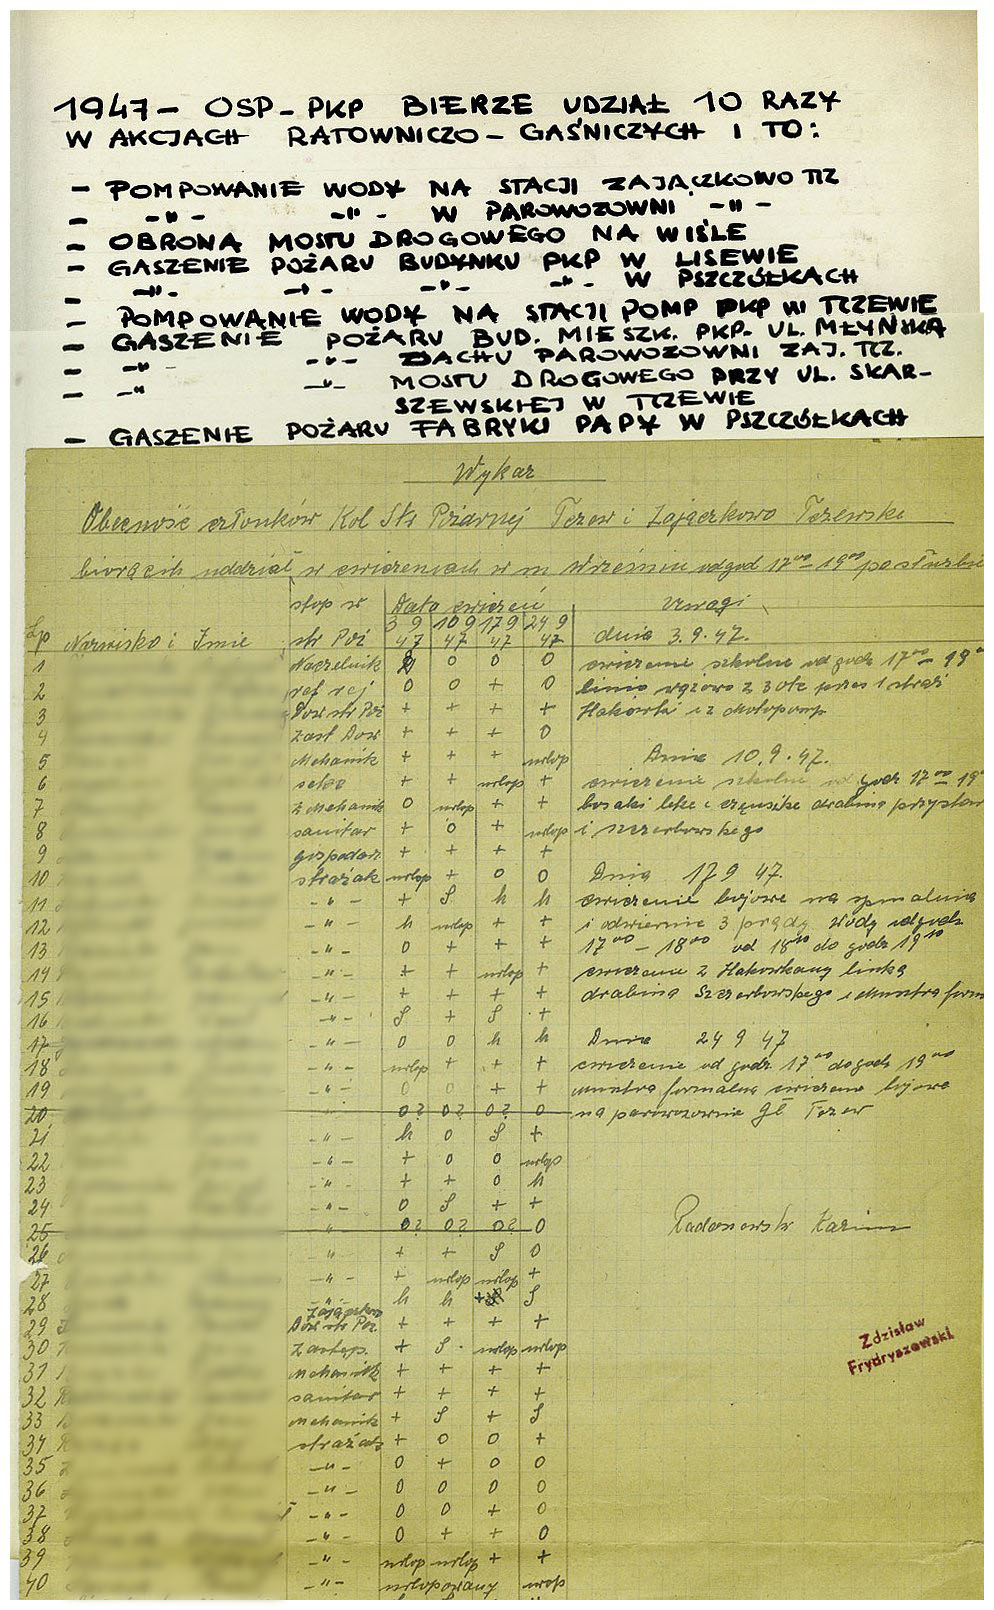 1947 - OSP - PKP BIERZE UDZIAŁ 10 RAZY
W AKCJACH RATOWNICZO - GAŚNICZYCH I TO:
- POMPOWANIE WODY NA STACJI ZAJĄCZKOWO TCZ
- -"- -"- W PAROWOZOWNI -"-
- OBRONA MOSTU DROGOWEGO NA WIŚLE
- GASZENIE POŻARU BUDYNKU PKP W LISEWIE
- -"- -"- -"- -"- W PSZCZÓŁKACH
- POMPOWANIE WODY NA STACJI POMP PKP W TCZEWIE
- GASZENIE POŻARU BUD. MIESZK. PKP. UL. MŁYŃSKA
- -"- -"- DACHU PAROWOZOWNI ZAJ. TCZ.
- -"- -"- MOSTU DROGOWEGO PRZY UL. SKAR-
SZEWSKIEJ W TCZEWIE
- GASZENIE POŻARU FABRYKI PAPY W PSZCZÓŁKACH
Wykaz
Obecność członków Kol Str Pożarnej Tczew i Zajączkowo Tczewskie
biorących uddział w cwiczeniach w m Wrześniu od god 17⁰⁰ 19⁰⁰ po służbie
stop w Data cwiczeń Uwagi
3 9 10 9 17 9 24 9
Lp Nazwisko i Imie str Poż 47 47 47 47 dnia 3.9.47.
1 Naczelnik 0 0 0 cwiczenie szkolne od godz 17⁰⁰ - 19⁰⁰
2 ref rej 0 0 + 0 linia wężowa z 3 ote przes 1 straż
3 Dow str Poż + + + +
4 Zast Dow + + + 0
5 Mechanik + + + urlop Dnia 10.9.47.
6 + + urlop + cwiczenie szkolne od godz 17⁰⁰ - 19⁰
7 Z Mechanik 0 urlop + + bosaki lekie i cięzskie drabina przystaw
8 sanitar + 0 + urlop i szczerbowskiego
9 gospodar. + + + +
10 strażak urlop + 0 0 Dnia 17 9 47.
11 -"- + S h h cwiczenie bojowe na
12 -"- h urlop + + i 3 prądy wody od godz
13 -"- 0 + + + 17⁰⁰ - 18⁰⁰ od 18¹⁰ do godz 19¹⁰
14 -"- + + urlop + cwiczenie z linką
15 -"- + + + + drabina Szczerbowskiego i musztra form
16 -"- S + S +
17 -"- 0 0 h h Dnia 24 9 47
18 -"- urlop + + + cwiczenie od godz. 17⁰⁰ do godz 19⁰⁰
19 -"- 0 0 + + musztra formalna cwiczenie bojowe
20 0? 0? 0? 0 na parowozownie Gł Tczew
21 -"- h 0 S +
22 -"- + 0 0 urlop
23 -"- + + 0 h
24 -"- 0 S + +
25 " 0? 0? 0? 0
26 -"- + + S 0
27 -"- + urlop urlop +
28 -"- h h + S
29 Dow str Poż. + + + +
30 Zastęp. + S urlop urlop
31 Mechanik + + + +
32 sanitar + + + +
33 Mechanik + S + S
34 strażak + 0 0 +
35 -"- 0 + 0 0
36 -"- 0 0 0 0
37 -"- 0 0 + 0
38 -"- 0 + + 0
39 -"- urlop urlop + +
40 -"- urlopowany urop
Zdzisław
Frydryszewski